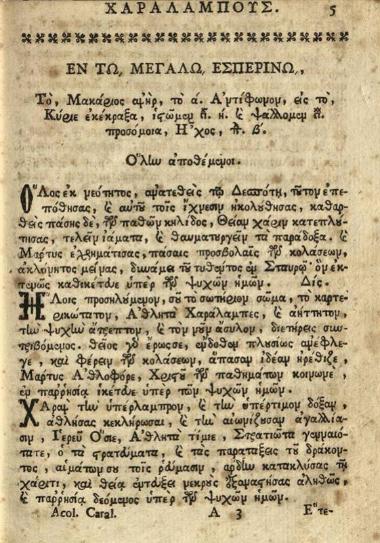 ΧΑΡΑΛΑΜΠΟΥΣ. 5
ΕΝ ΤΩ, ΜΕΓΑΛΩ, ΕΣΠΕΡΙΝΩ,,
Τὸ, Μακάριος ἀνὴρ, τὸ ά. Ἀντίφωνον, εἰς τὸ,
Κύριε ἐκέκραξα, ἱςῶμεν ς. ή. ϗ ψάλλομεν ς.
προσόμοια, Ἦχος, β.
Ὅλην ἀποθέμενοι.
Ὅλος ἐκ νεότητος, ἀνατεθεὶς τῷ Δεσπότῃ, τοῦτον ἐπε-
πόθησας, ϗ αὐτοῦ τοῖς ἴχνεσιν ἠκολούθησας, καθαρ-
θεὶς πάσης δὲ, τῶν παθῶν κηλῖδος, Θείαν χάριν κατεπλού-
τησας, τελεῖν ἰάματα, ϗ θαυματουργεῖν τὰ παράδοξα. ϗ
Μάρτυς ἐχρημάτισας, πάσαις προσβολαῖς τῶν κολάσεων,
ἀκλόνητος μείνας, δυνάμει τοῦ τυθέντος ἐν Σταυρῷ· ὃν ἐκ-
τενῶς καθικέτευε ὑπὲρ τῶν ψυχῶν ἡμῶν. Δίς.
Ἥλοις προσηλούμενον, σοῦ τὸ σωτήριον σῶμα, τὸ καρτε-
ρικώτατον, Ἀθλητὰ Χαράλαμπες, ϗ ἀήττητον,
τὴν ψυχὴν ἄτρεπτον, ϗ τὸν νοῦν ἄσυλον, διετήρεις συν-
τριβόμενος. θεῖος γὰρ ἔρως σε, ἔνδοθεν πλουσίως ἀνέφλε-
γε, καὶ φέρειν τῶν κολάσεων, ἅπασαν ἰδέαν ἠρέθιζε,
Μάρτυς Ἀθλοφόρε, Χριστοῦ τῶν παθημάτων κοινωνὲ,
ἐν παρρησίᾳ ἱκέτευε ὑπὲρ τῶν ψυχῶν ἡμῶν.
Χαρὰν τὴν ὑπέρλαμπρον, ϗ τὴν ὑπέρτιμον δόξαν,
ἀθλήσας κεκλήρωσαι, ϗ τὴν αἰωνίζουσαν ἀγαλλία-
σιν, Ἱερεῦ Ὅσιε, Ἀθλητὰ τίμιε, Στρατιῶτα γενναιό-
τατε, ὁ τὰ στρατεύματα, ϗ τὰς παρατάξεις τοῦ δράκον-
τος, αἱμάτων σου τοῖς ῥεύμασιν, ἄρδην κατακλύσας τῇ
χάριτι, καὶ θείᾳ ἐντεύξει νεκροὺς ἐξαναστήσας ἀληθῶς,
ἐν παρρησίᾳ δεόμενος ὑπὲρ τῶν ψυχῶν ἡμῶν.
Acol. Caral. A 3 Ἔτε-